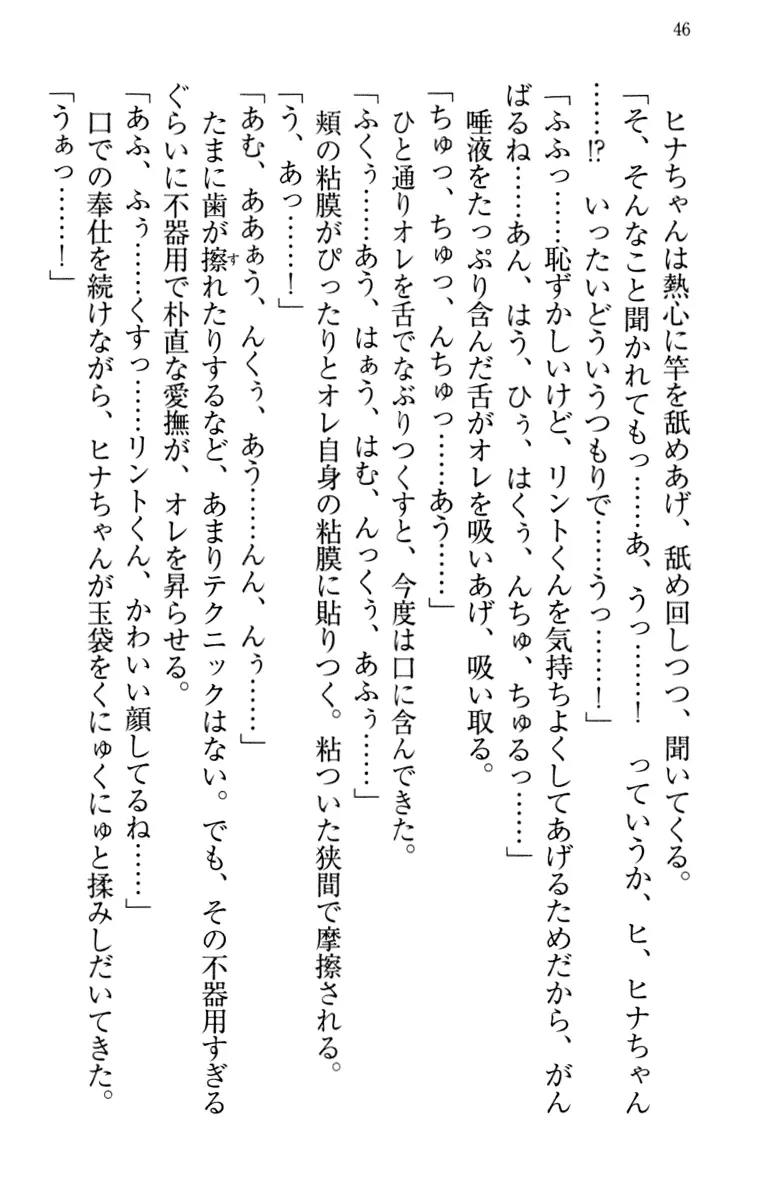 46
ヒナちゃんは熱心に竿を舐めあげ、舐め回しつつ、聞いてくる。
「そ、そんなこと聞かれてもっ……あ、うっ……！　っていうか、ヒ、ヒナちゃん
……!?　いったいどういうつもりで……うっ……！」
「ふふっ……恥ずかしいけど、リントくんを気持ちよくしてあげるためだから、がん
ばるね……あん、はう、ひぅ、はくぅ、んちゅ、ちゅるっ……」
唾液をたっぷり含んだ舌がオレを吸いあげ、吸い取る。
「ちゅっ、ちゅっ、んちゅっ……あう……」
ひと通りオレを舌でなぶりつくすと、今度は口に含んできた。
「ふくぅ……あう、はぁう、はむ、んっくぅ、あふぅ……」
頬の粘膜がぴったりとオレ自身の粘膜に貼りつく。粘ついた狭間で摩擦される。
「う、あっ……！」
「あむ、ああぁう、んくぅ、あう……んん、んぅ……」
たまに歯が擦すれたりするなど、あまりテクニックはない。でも、その不器用すぎる
ぐらいに不器用で朴直な愛撫が、オレを昇らせる。
「あふ、ふぅ……くすっ……リントくん、かわいい顔してるね……」
口での奉仕を続けながら、ヒナちゃんが玉袋をくにゅくにゅと揉みしだいてきた。
「うぁっ……！」